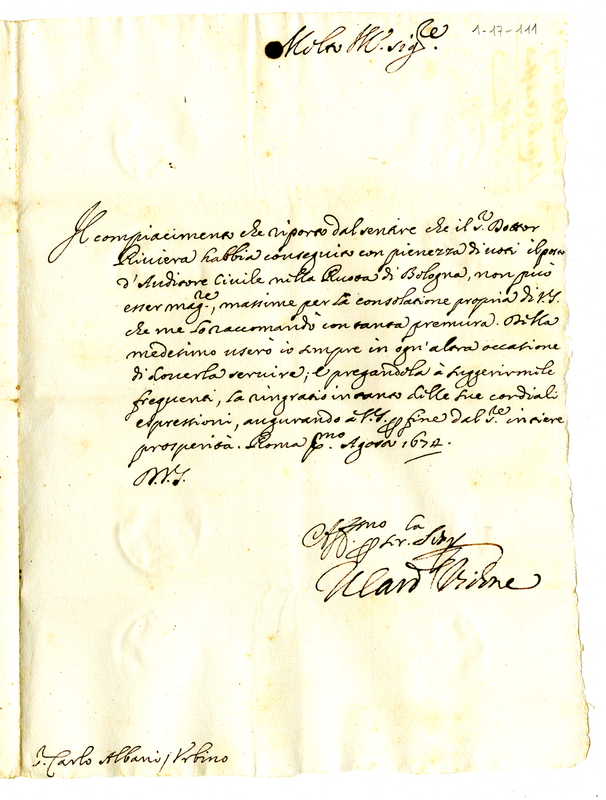 1-17-111
Molto Ill.re Sig.re
Il compiacimento che riporto dal sentire che il S.r Dottor
Riviera habbia conseguito con pienezza di voti il posto
d'Auditore Civile nella Ruota di Bologna, non può
esser mag.re, massime per la consolatione propria di V.S.
che me lo raccomandò con tanta premura. Della
medesima userò io sempre in ogn'altra occatione
di doverla servire; e pregandola à suggerirmele
frequenti, la ringratio intanto delle sue cordiali
espressioni, augurando à V.S. per fine dal S.re intiere
prosperità. Roma p.mo Agosto 1672.
D.V.S.
Aff.mo per ser.la Sem.
Il Card.
S.r Carlo Albani / Urbino